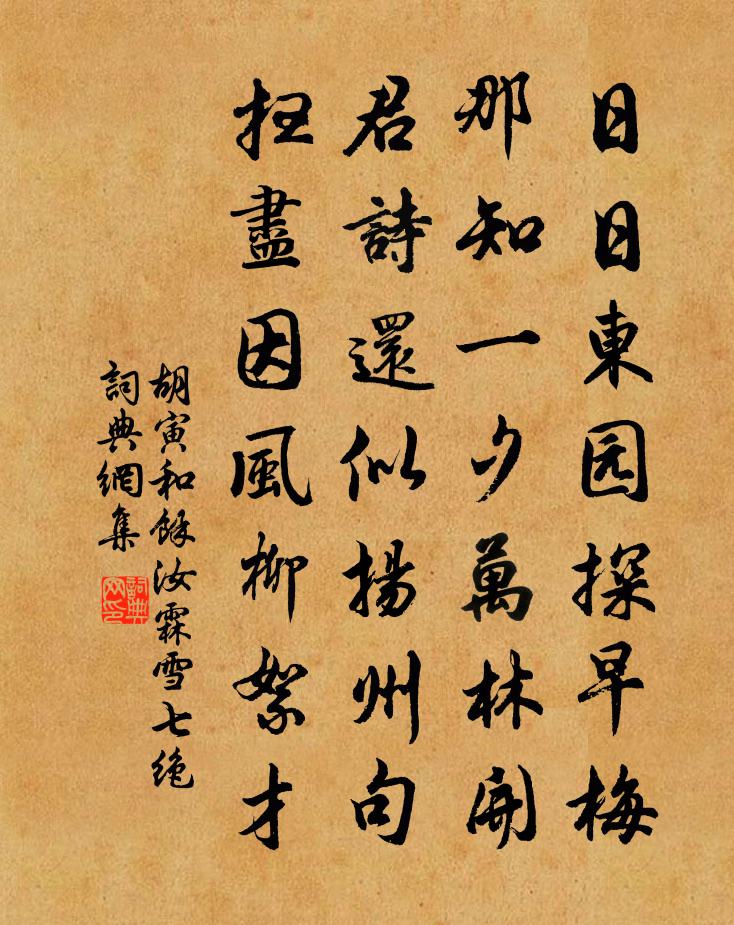 日日東园探早梅
那知一夕萬林開
君詩還似揚州句
抂盡因風柳絮才
胡寅和餘汝霖雪七绝
詞典網集
詞典网印